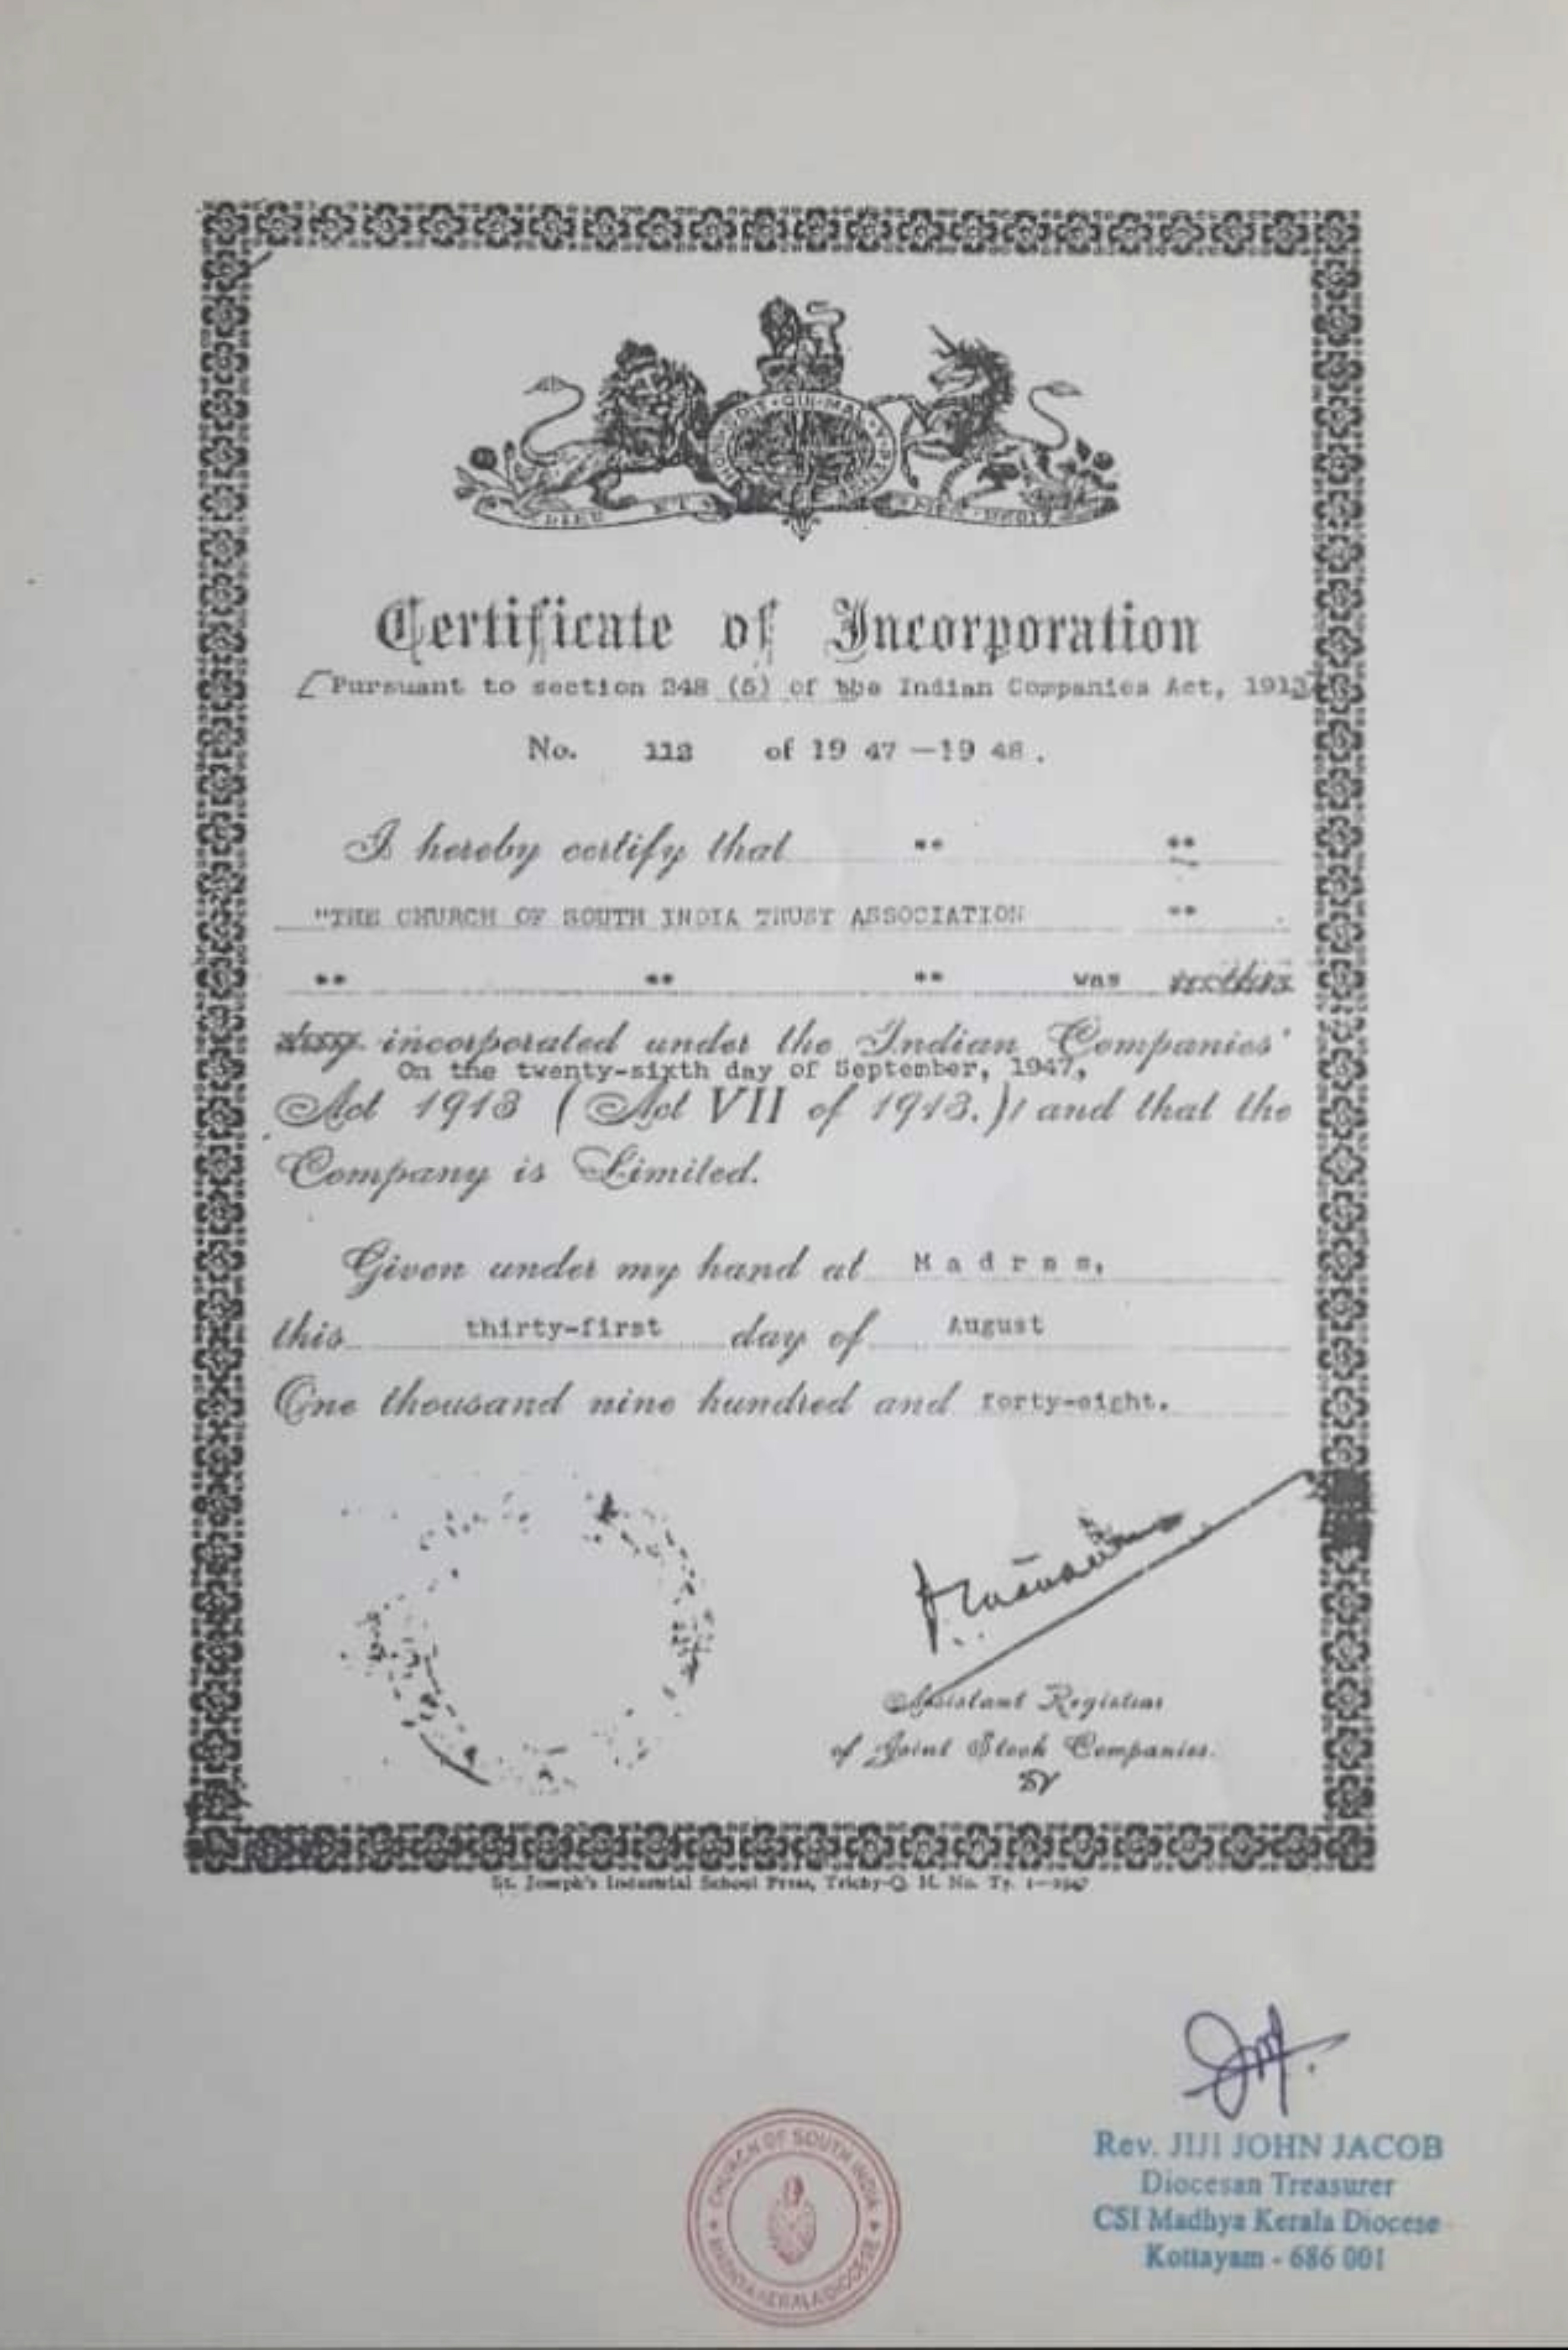 HONI SOIT QUI MAL Y PENSE
DIEU ET MON DROIT
Certificate of Incorporation
[Pursuant to section 248 (5) of the Indian Companies Act, 1913]
No. 112 of 19 47 —19 48 .
I hereby certify that " "
"THE CHURCH OF SOUTH INDIA TRUST ASSOCIATION "
" " " was
incorporated under the Indian Companies'
On the twenty-sixth day of September, 1947,
Act 1913 (Act VII of 1913.); and that the
Company is Limited.
Given under my hand at Madras,
this thirty-first day of August
One thousand nine hundred and forty-eight.
Assistant Registrar
of Joint Stock Companies.
St. Joseph's Industrial School Press, Trichy-
CHURCH OF SOUTH INDIA
MADHYA KERALA DIOCESE
Rev. JIJI JOHN JACOB
Diocesan Treasurer
CSI Madhya Kerala Diocese
Kottayam - 686 001